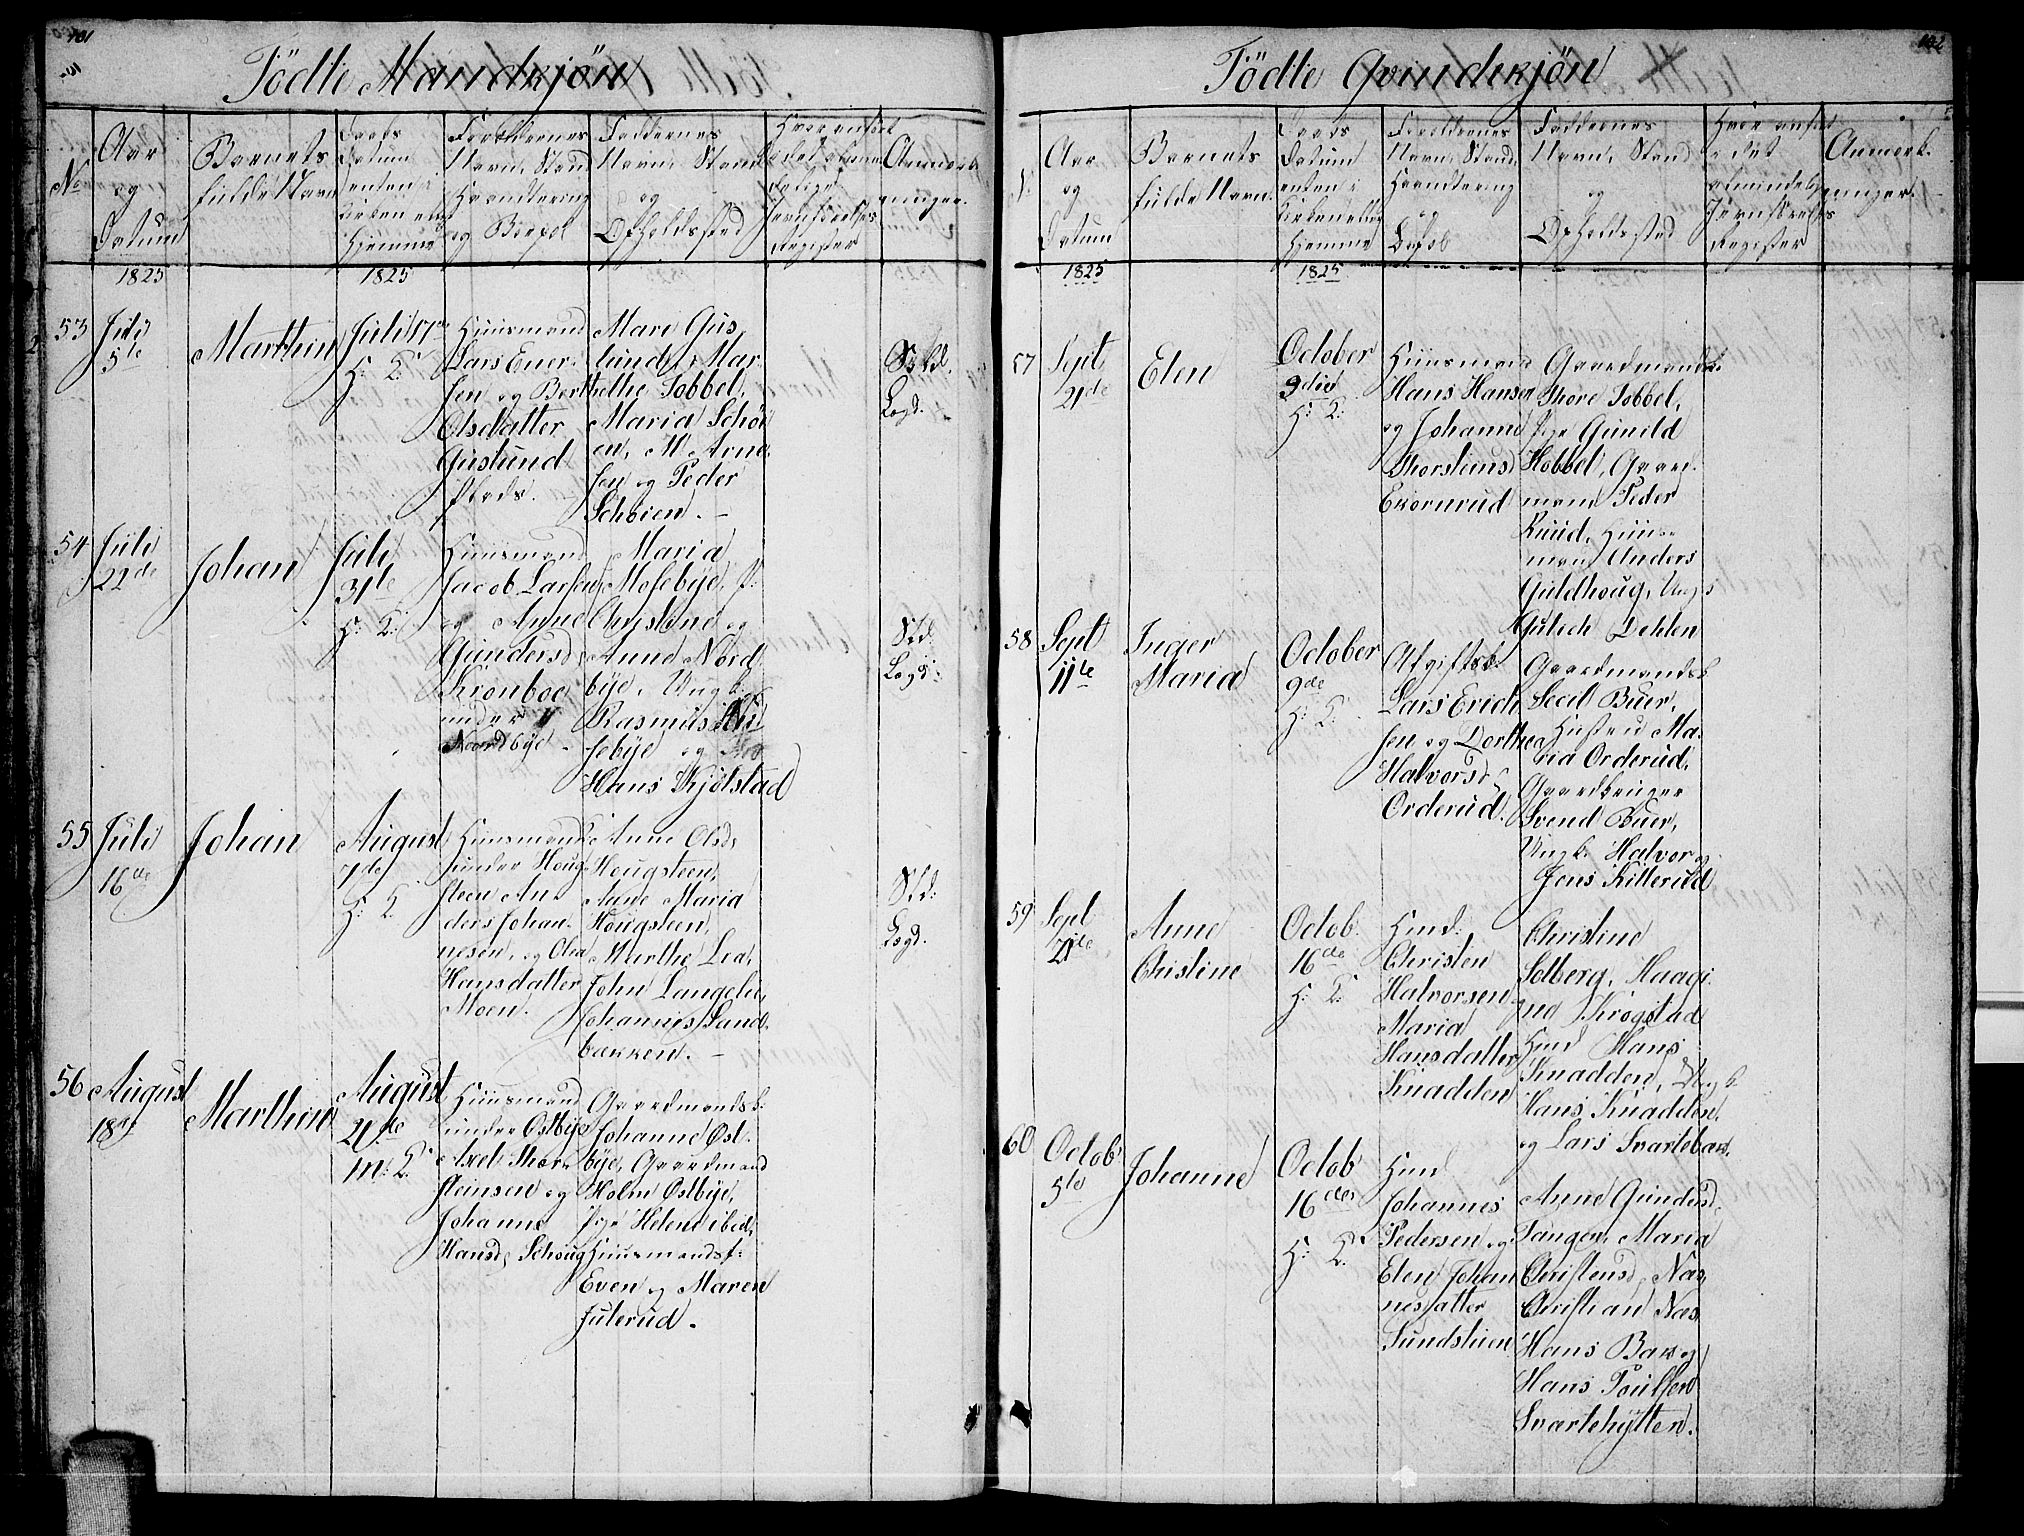 101
Födte Mandkjön
No
Aar
og
Datum
Barnets
fulde Navn
Daabs
Datum
enten i
Kirken ell
Hjemme
Forældrenes
Navn, Stand
Haandtering
og Bopæl
Faddernes
Navn, Stand
og
Opholdssted
Hvor anført
i det almin
delige
Jevnførelses
Register
Anmærk
ninger.
1825
1825
53
Juli
5te
Marthin
Juli 17de
H: D:
Huusmand
Lars Ever
sen og Berthe
Olsdatter
Guslund
plads.
Mari Gus
lund, Mar
the Tobbel,
Maria Schöi
en, M Arne
sen og Peder
Schöien. –
Stkd.
Logd.
54
Juli
22de
Johan
Juli
31te
H: D:
Huusmand
Jacob Larsen
og Anne
Gundersd
Kronboe
under
Nordbye.
Maria
Mosebye, P:
Christine og
Anne Nord
bye, Ungk:
Rasmus
sebye og
Hans Kjölstad
Std:
Logd:
55
Juli
16de
Johan
August
7de
H: D.
Huusmand
under Houg
steen An
ders Johan
nesen, og Olea
Hansdatter
Moen.
Anne Olsd,
Hougsteen,
Anne Maria
Hougsteen,
Marthe Lea,
John Langelie,
Johannes Sand
bakken. –
Std:
Logd.
56
August
18de
Marthin
August
21de
m: D:
Huusmand
under Ostbye
Axel Thor
steinsen og
Johanne
Hansd, Schoug
Gaardmandsk:
Johanne Öst
bye, Gaardmand
Holm Östbye,
Pige Helene ibid,
Huusmandsf:
Even og Maren
Julerud.
102
Födte Qvindekjön
Aar
og
Datum
Barnets
fulde Navn.
Daabs
Datum
enten i
Kirken eller
Hjemme
Forældrenes
Navn, Stand,
Haandtering
og
Bopæl
Faddernes
Navn, Stand
og
Opholdssted
Hvor anført
i det
almindelige
Jevnførelses
Register
Anmærk.
ninger.
1825
1825
57
Sept
21de
Elen
October
9de
H: D:
Huusmand
Hans Hansen
og Johanne
Thorsteinsd
Ekornrud
Gaardmand
Thore Tobbel,
Pige Gunild
Hobbel, Gaard
mand Peder
Ruud, Huus
mand Anders
Guldhoug, Ungk
Gulich Dehlen
58
Sept
11te
Inger
Maria
October
9de
H: D:
Afgiftsk
Lars Erich
sen og Dorthea
Halvorsd
Orderud.
Gaardmandsk
Secil Buer,
Hustru Ma
ria Orderud,
Gaardbruger
Svend Buer,
Ungk. Halvor og
Jens Kitterud
59
Sept
21de
Anne
Chistine
Octob.
16de
H: D:
Husd:
Christen
Halvorsen
Maria
Hansdatter
Knadden
Christine
Solberg, Haagi
na Krogstad
Husd Hans
Knadden, Ungk.
Hans Knadden,
og Lars Svartebak.
60
Octob
5te
Johanne
Octob
16de
H: D.
Husd
Johannes
Pedersen og
Elen Johan
nesdatter
Sundstuen
Anne Gundersd,
Tangen, Maria
Christensd, Næs
Christian Næs
Hans Bak og
Hans Poulsen
Svartehytten.